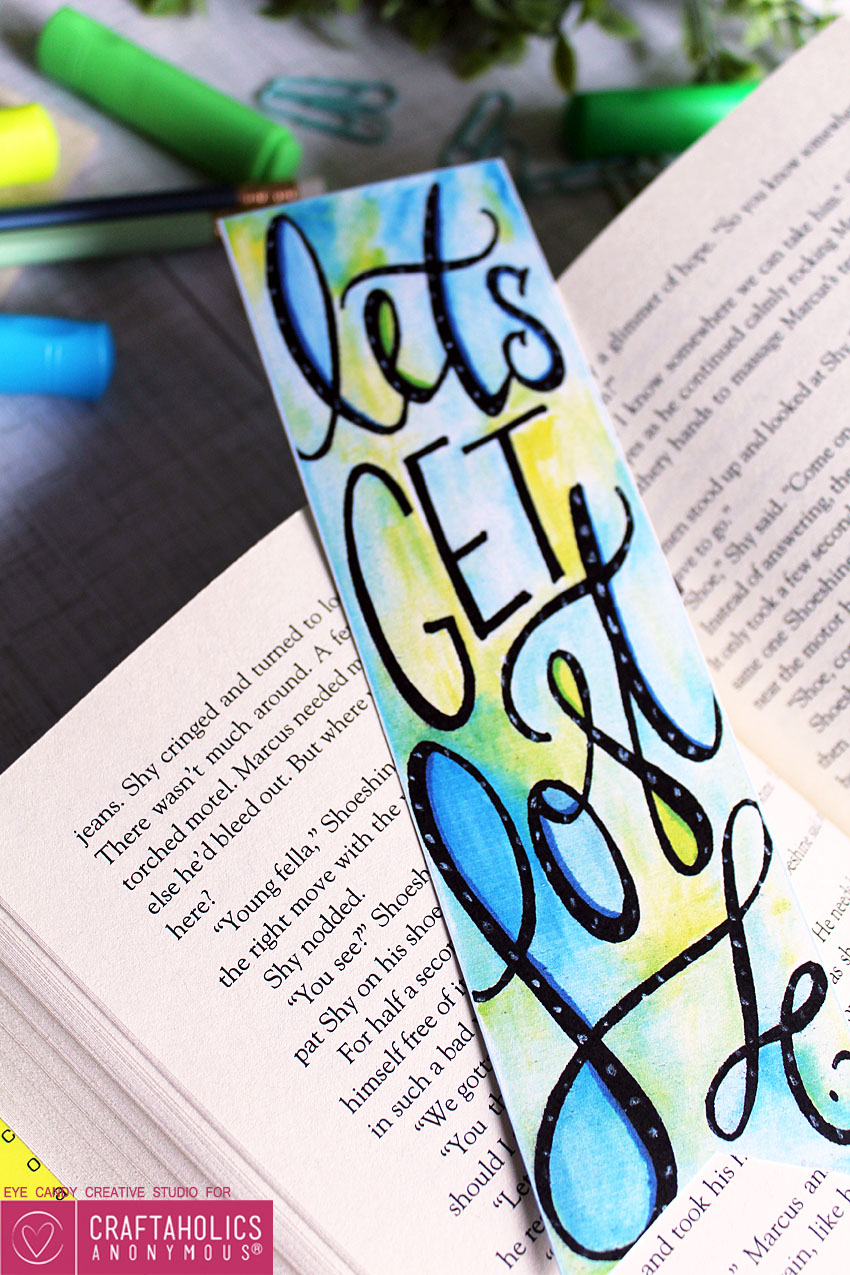 lets
GET
lost
jeans. Shy cringed and turned to
There wasn't much around. A
torched motel. Marcus needed
else he'd bleed out. But where
here?
"Young fella," Shoeshine
the right move with the
Shy nodded.
"You see?"
pat Shy on his
For half a
himself free of
in such a bad
"We
"You
should I
he
glimmer of hope. "So you know
I know somewhere we can take him."
as he continued calmly rocking
hands to massage Marcus's
stood up and looked at Shy
to go."
Shy said. "Come on
Instead of answering, the
It only took a few
same one Shoeshine
near the motor
"Shoe,
then
He
as
and took his
" Marcus
like
EYE CANDY CREATIVE STUDIO FOR
CRAFTAHOLICS
ANONYMOUS®